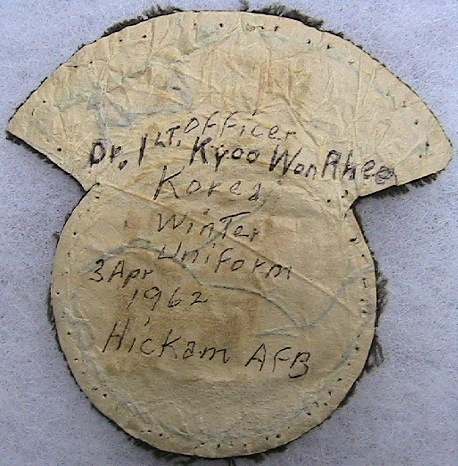 Officer
Dr. 1 LT. Kyoo Won Rhee
Korea
Winter
Uniform
3 Apr
1962
Hickam AFB